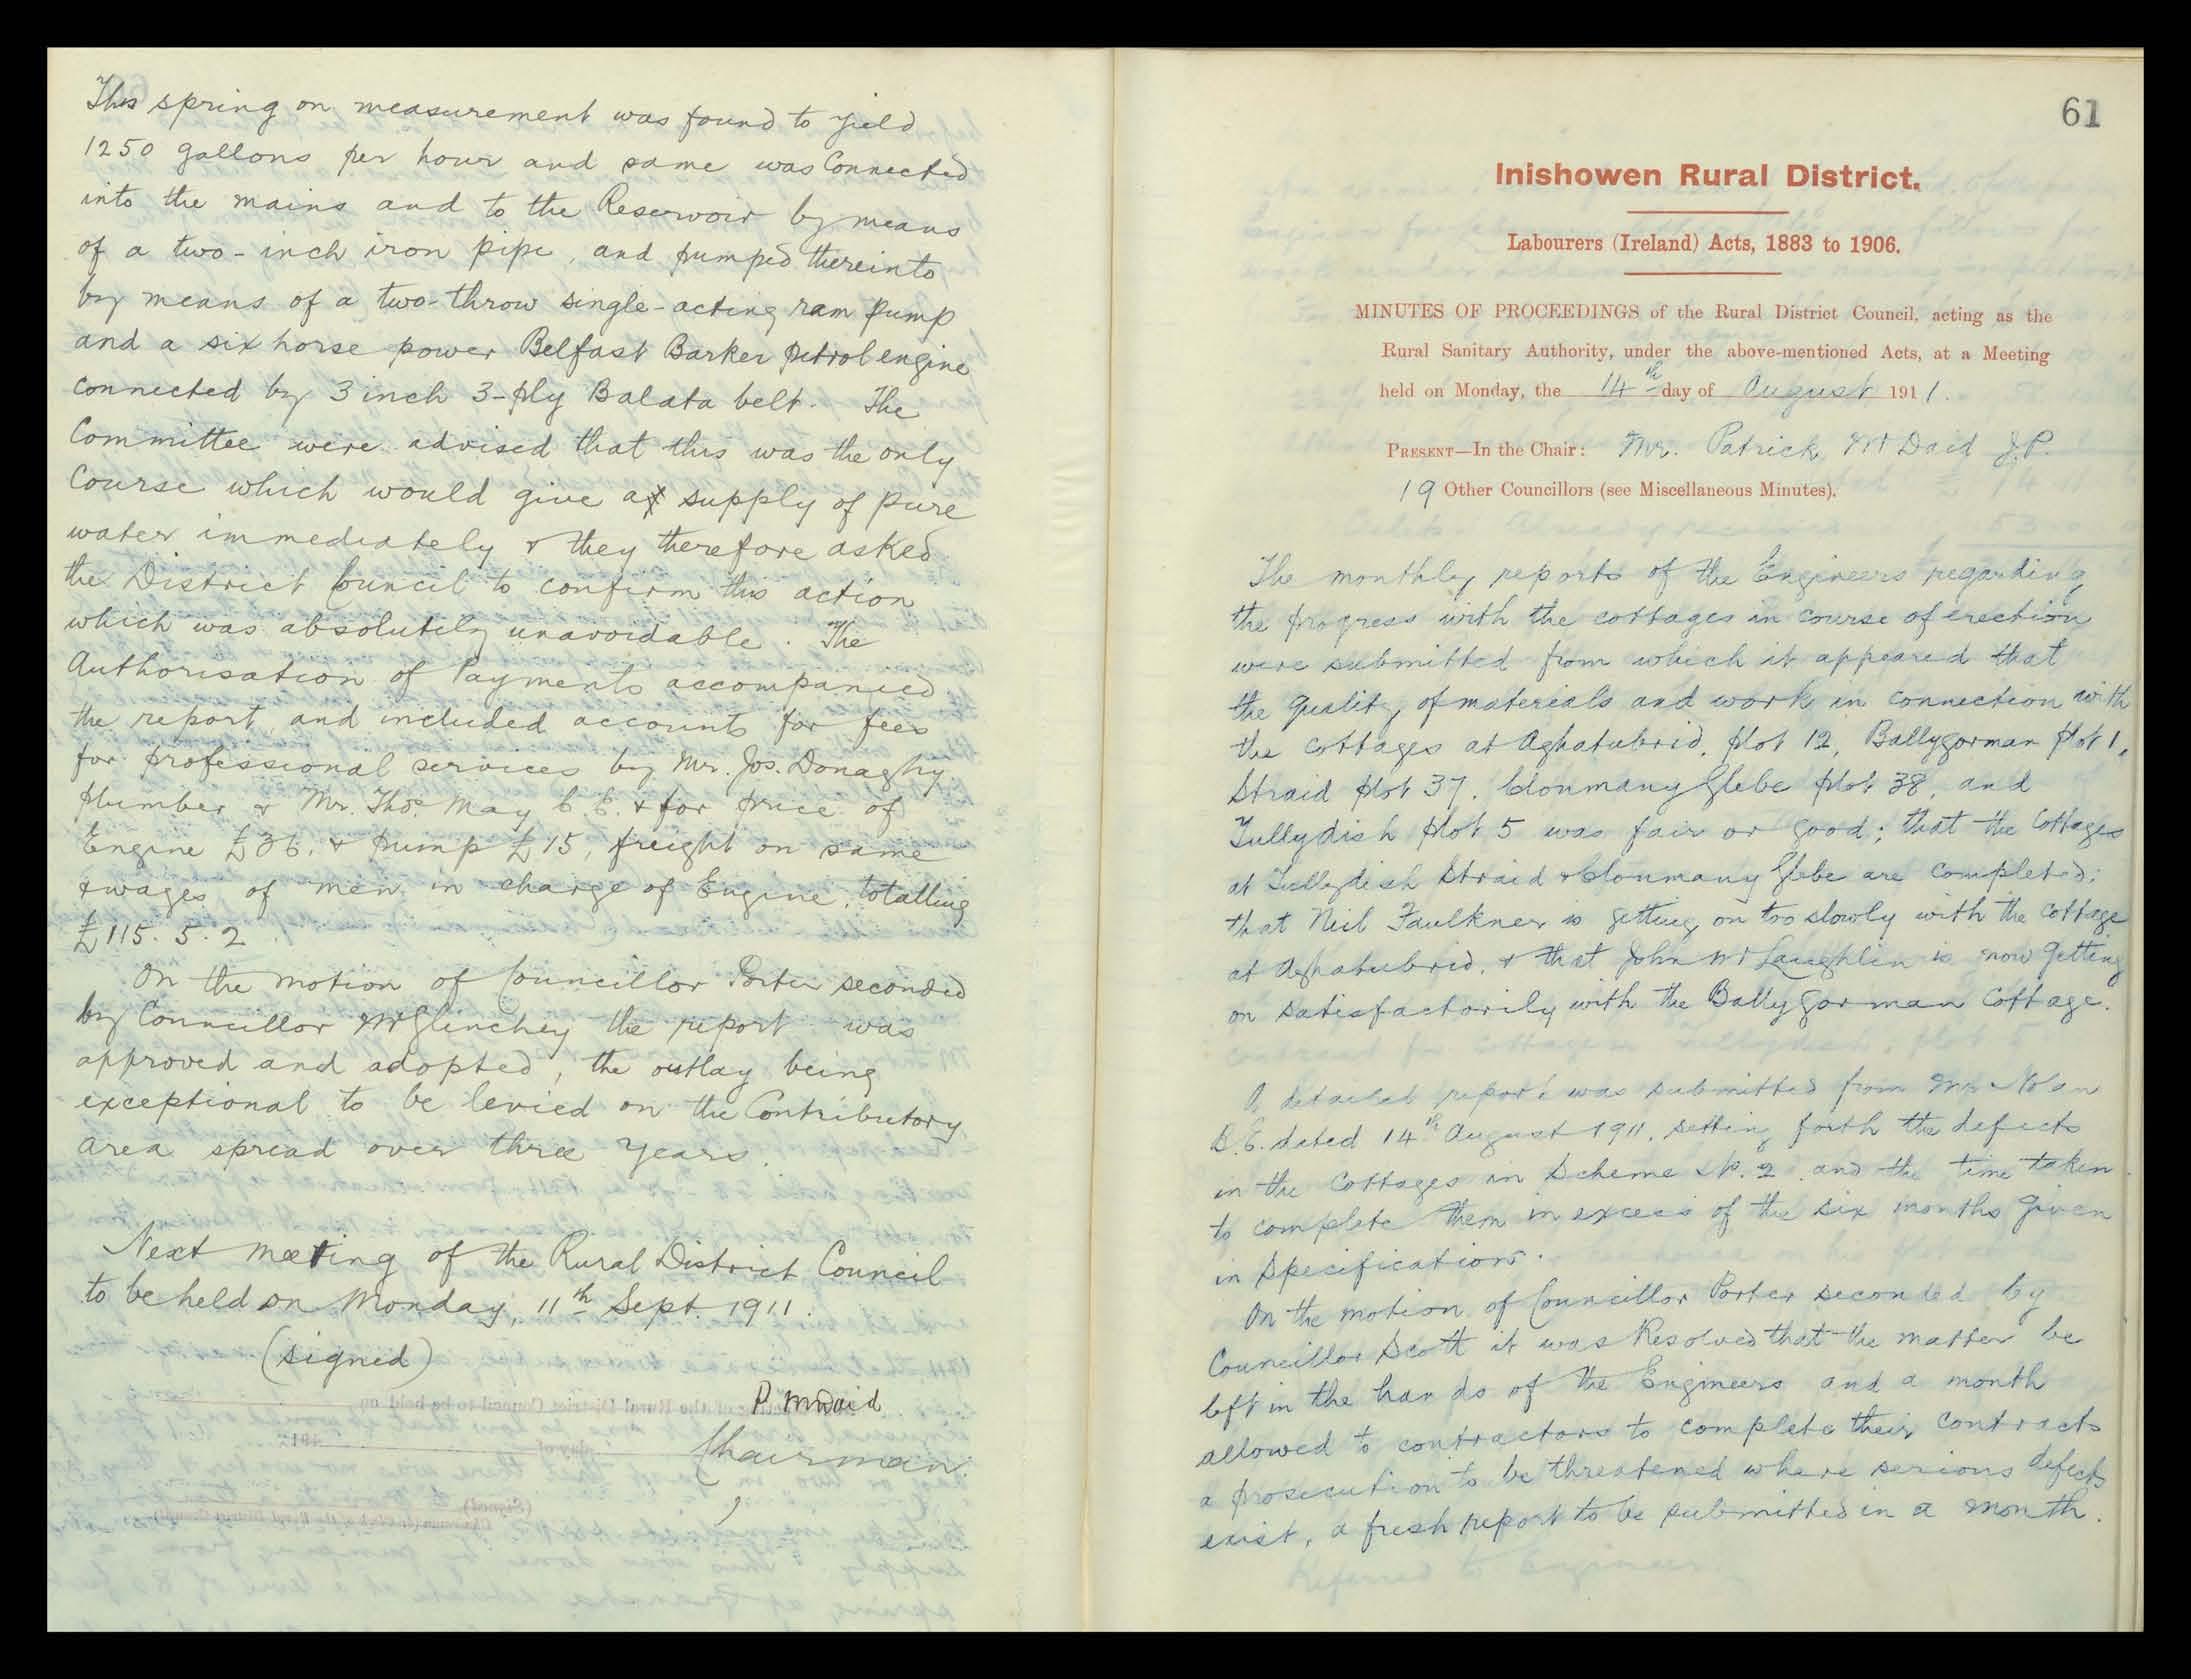 This spring on measurement was found to yield
1250 gallons per hour and same was Connected
into the mains and to the Reservoir by means
of a two-inch iron pipe, and pumped thereinto
by means of a two-throw single-acting ram pump
and a six horse power Belfast Barker petrol engine
connected by 3 inch 3-ply Balata belt. The
Committee were advised that this was the only
Course which would give a supply of pure
water immediately & they therefore asked
the District Council to confirm this action
which was absolutely unavoidable. The
Authorisation of Payments accompanied
the report and included accounts for fees
for professional services by Mr. Jos. Donaghy
plumber & Mr. Thos. May C.E. & for price of
Engine £36. & pump £15, freight on same
& wages of men in charge of Engine, totalling
£115. 5. 2
On the motion of Councillor Porter seconded
by Councillor McGlinchey the report was
approved and adopted, the outlay being
exceptional to be levied on the Contributory
area spread over three years.
Next meeting of the Rural District Council
to be held on Monday, 11th Sept. 1911.
(signed)
P McDaid
Chairman.
61
Inishowen Rural District.
Labourers (Ireland) Acts, 1883 to 1906.
MINUTES OF PROCEEDINGS of the Rural District Council, acting as the
Rural Sanitary Authority, under the above-mentioned Acts, at a Meeting
held on Monday, the 14th day of August 1911.
PRESENT—In the Chair: Mr. Patrick McDaid J.P.
19 Other Councillors (see Miscellaneous Minutes).
The monthly reports of the Engineers regarding
the progress with the cottages in course of erection
were submitted from which it appeared that
the quality of materials and work in connection with
the cottages at Aghatubrid, plot 12, Ballygorman plot 1,
Straid plot 37, Clonmany Glebe plot 38, and
Tullydish plot 5 was fair or good; that the Cottages
at Tullydish Straid & Clonmany Glebe are completed;
that Neil Faulkner is getting on too slowly with the Cottage
at Aghatubrid, & that John McLaughlin is now getting
on satisfactorily with the Ballygorman Cottage.
A detailed report was submitted from Mr Nolan
B.E. dated 14th August 1911, setting forth the defects
in the Cottages in Scheme No. 2 and the time taken
to complete them in excess of the six months given
in Specifications.
On the motion of Councillor Porter seconded by
Councillor Scott it was Resolved that the matter be
left in the hands of the Engineers and a month
allowed to contractors to complete their contracts
a prosecution to be threatened where serious defects
exist, a fresh report to be submitted in a month.